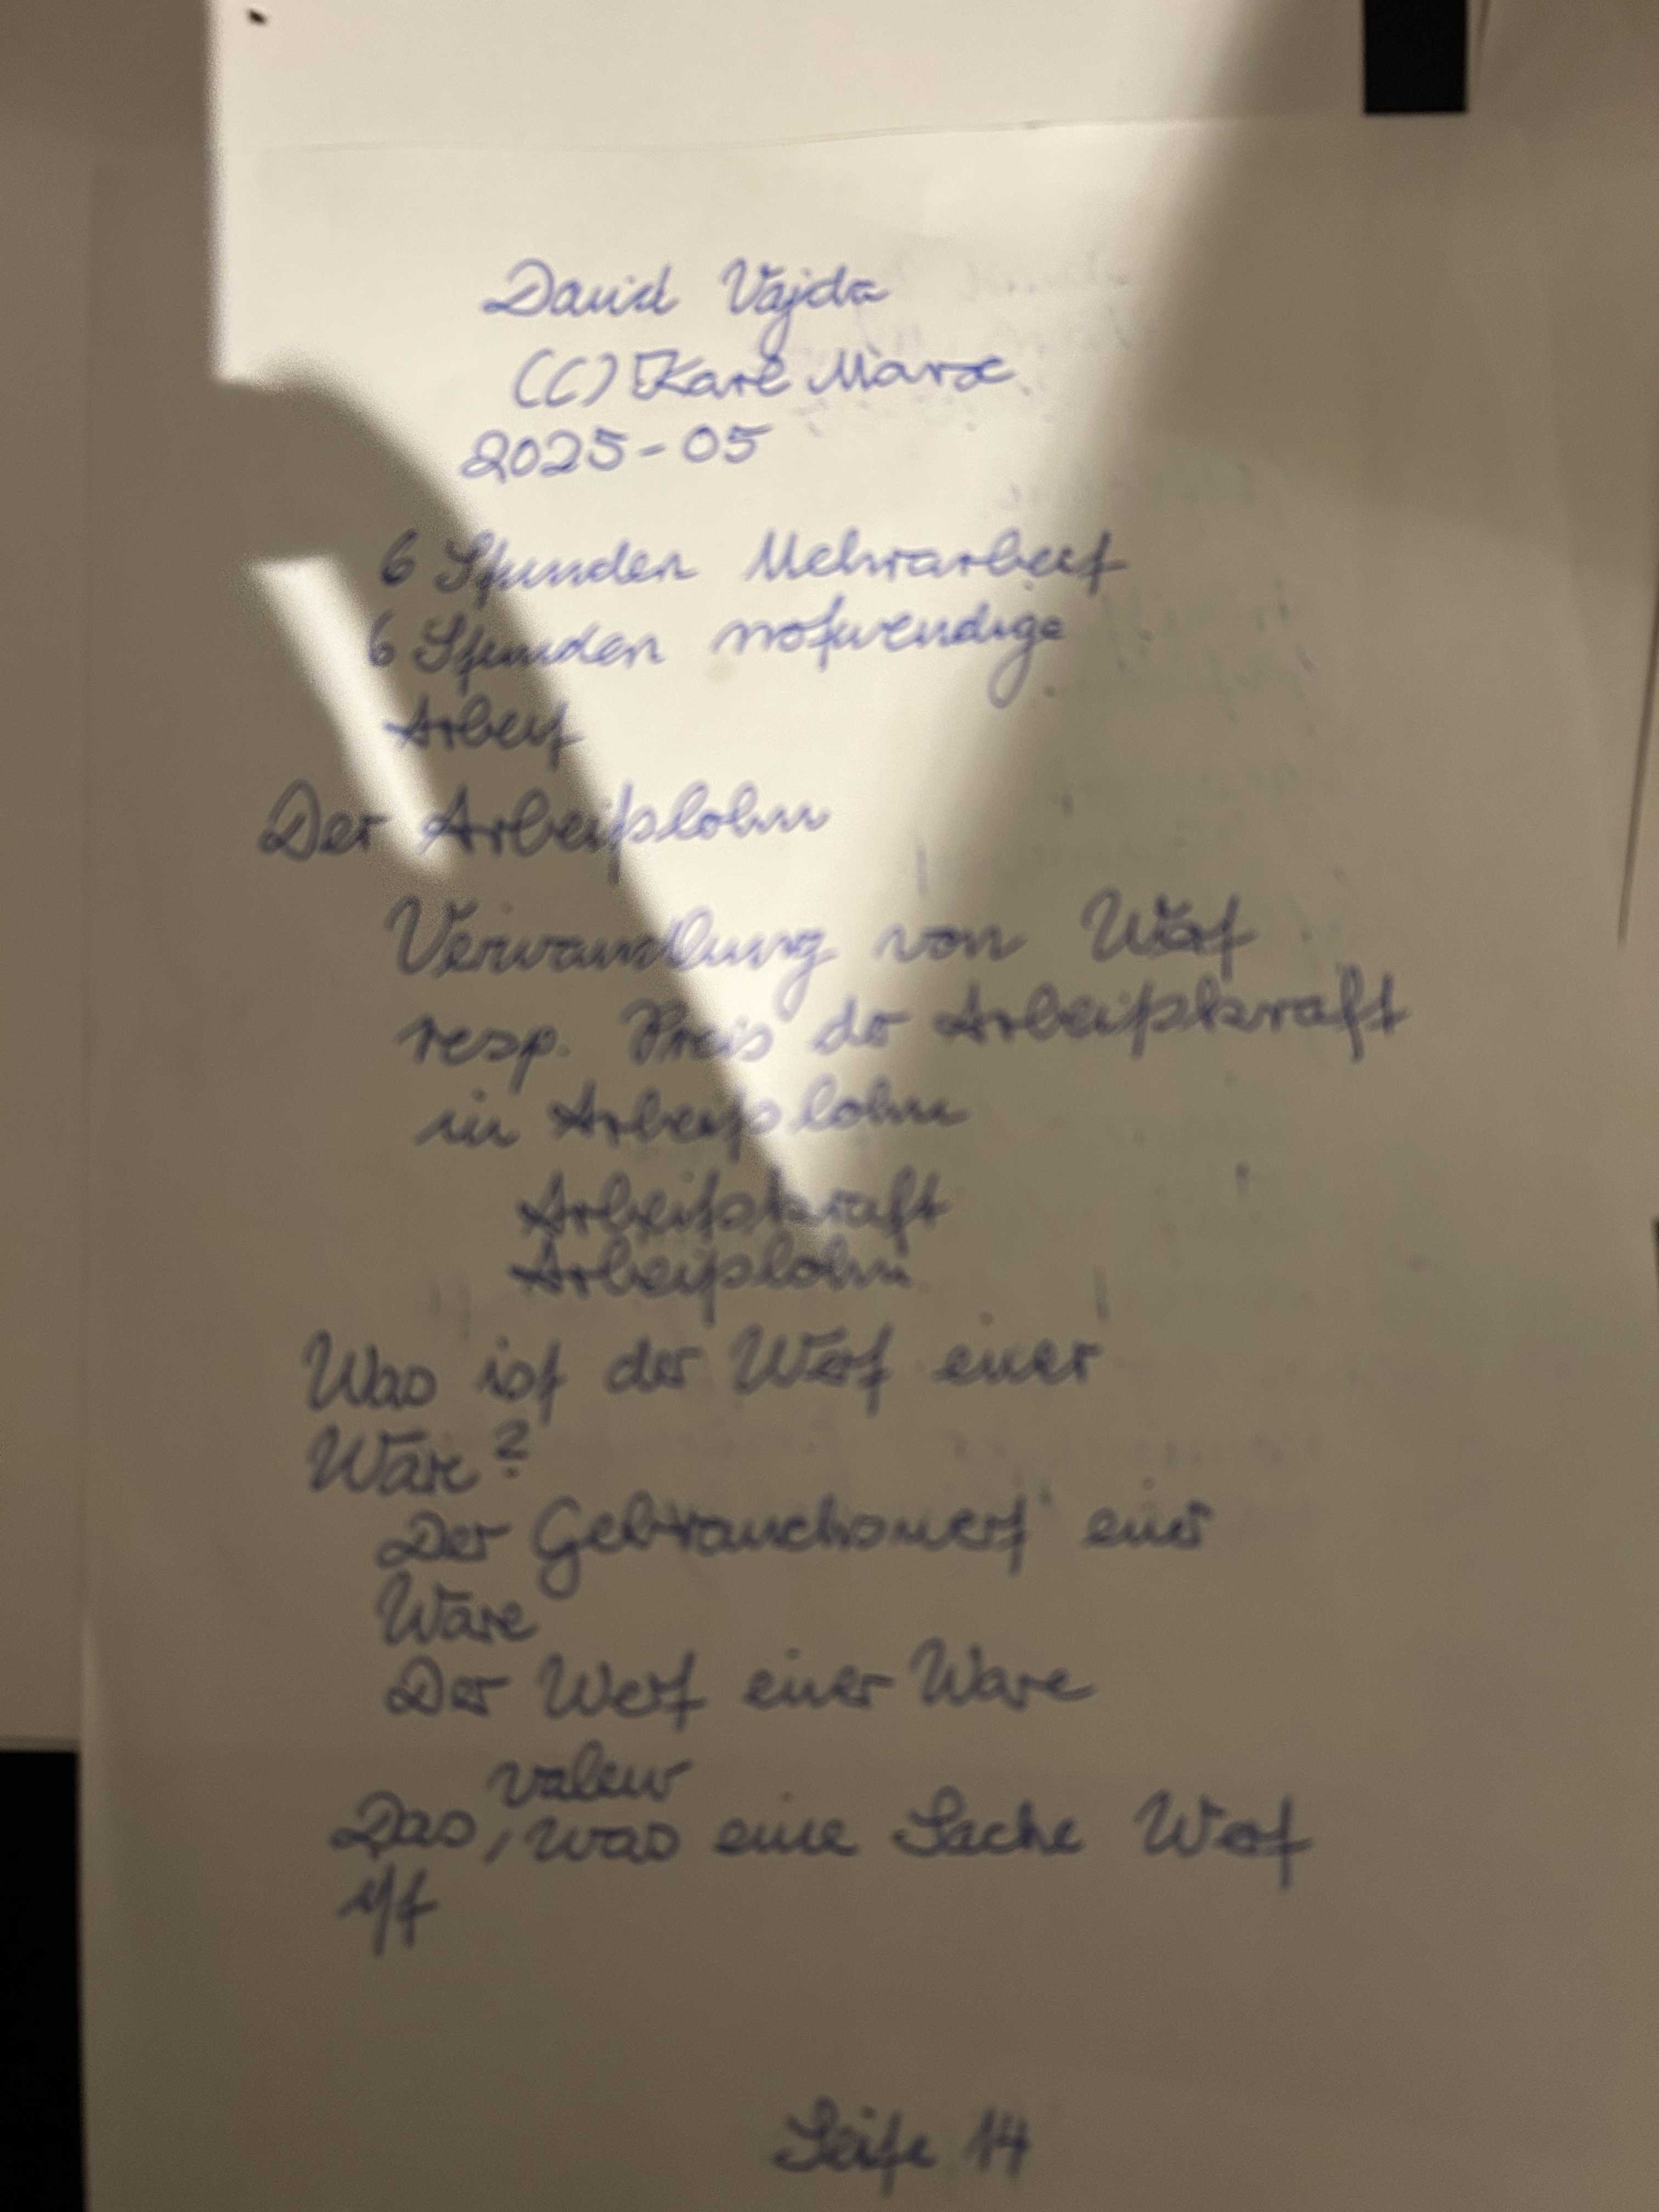 David Vajda
(C) Karl Marx
2025-05
6 Stunden Mehrarbeit
6 Stunden notwendige
Arbeit
Der Arbeitslohn
Verwandlung von Wert
resp. Preis der Arbeitskraft
in Arbeitslohn
Arbeitskraft
Arbeitslohn
Was ist der Wert einer
Ware?
Der Gebrauchswert einer
Ware
Der Wert einer Ware
valeur
Das, was eine Sache Wert
ist
Seite 14